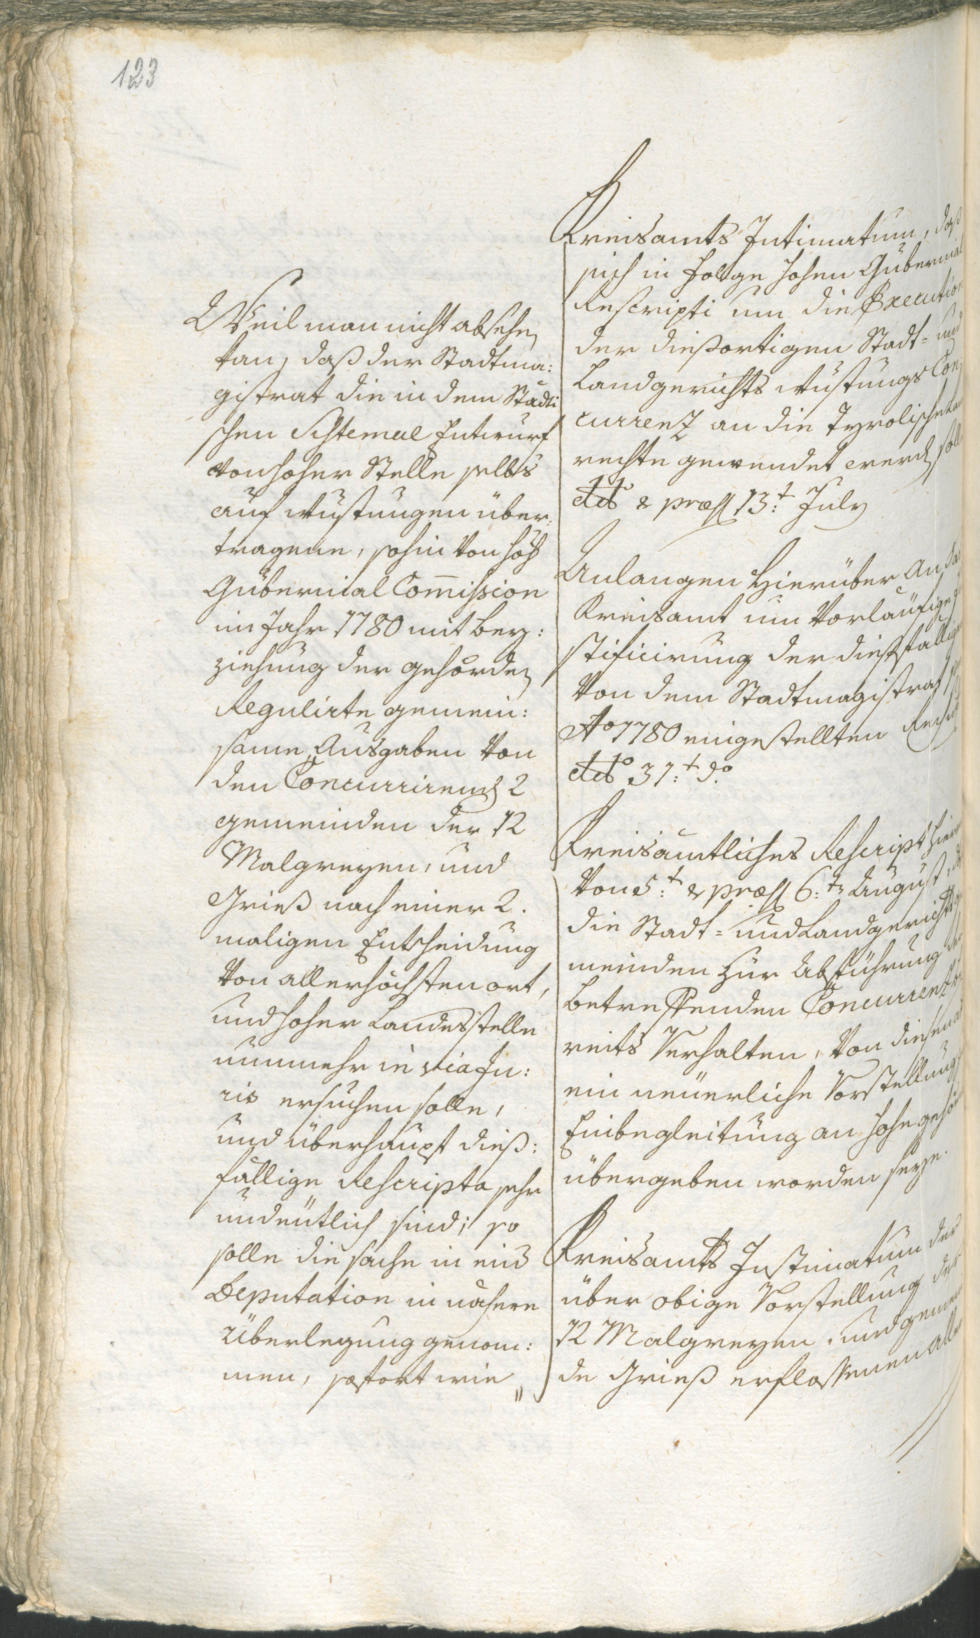 123
Weil man nicht absehen
kan, daß der Stadtma:
gistrat die in dem Städti
schen Sÿstemal Entwurf
von hoher Stelle selbs
auf Wustungen über:
tragene, sohin von höh
Gubernial Com̅ission
im Jahr 1780 mit bey:
ziehung der gehörden
Regulirte gemein:
same Ausgaben von
den Concurrirend 2
gemeinden der 12
Malgreyen, und
Grieß nach einer 2.
maligen Entscheidung
von allerhöchsten ort,
und hoher Landesstelle
nunmehr in via Ju:
ris ersuchen solle,
und überhaupt dieß:
fällige Rescripta sehr
undeütlich sind; so
solle die sache in eine
Deputation in nähere
Überlegung genom:
men, sofort wie
Kreisamts Intimatum, daß
sich in Folge hohen Gubernial
Rescripti um die Execution
der dießortigen Stadt- und
Landgerichts Wustungs Con
currenz an die Tyrolische
rechte gewendet werden solle
ddto & præs 13.t July
Anlangen hierüber an das
Kreisamt um vorläufige
stificirung der dießfällig
von dem Stadtmagistrat
Ao 1780 eingestellten
ddto 31.t do
Kreisämtliches Rescript hier
von 5.t & præs 6.t August,
die Stadt- und Landgerichts
meinden zur Abführung
betreffenden Concurrenz
reits Verhalten, von diesen
ein neuerliche Vorstellung
Einbegleitung an hohe
übergeben worden seye.
Kreisamts Intimatum der
über obige Vorstellung der
12 Malgreyen, und gemein
de Grieß erflossenen